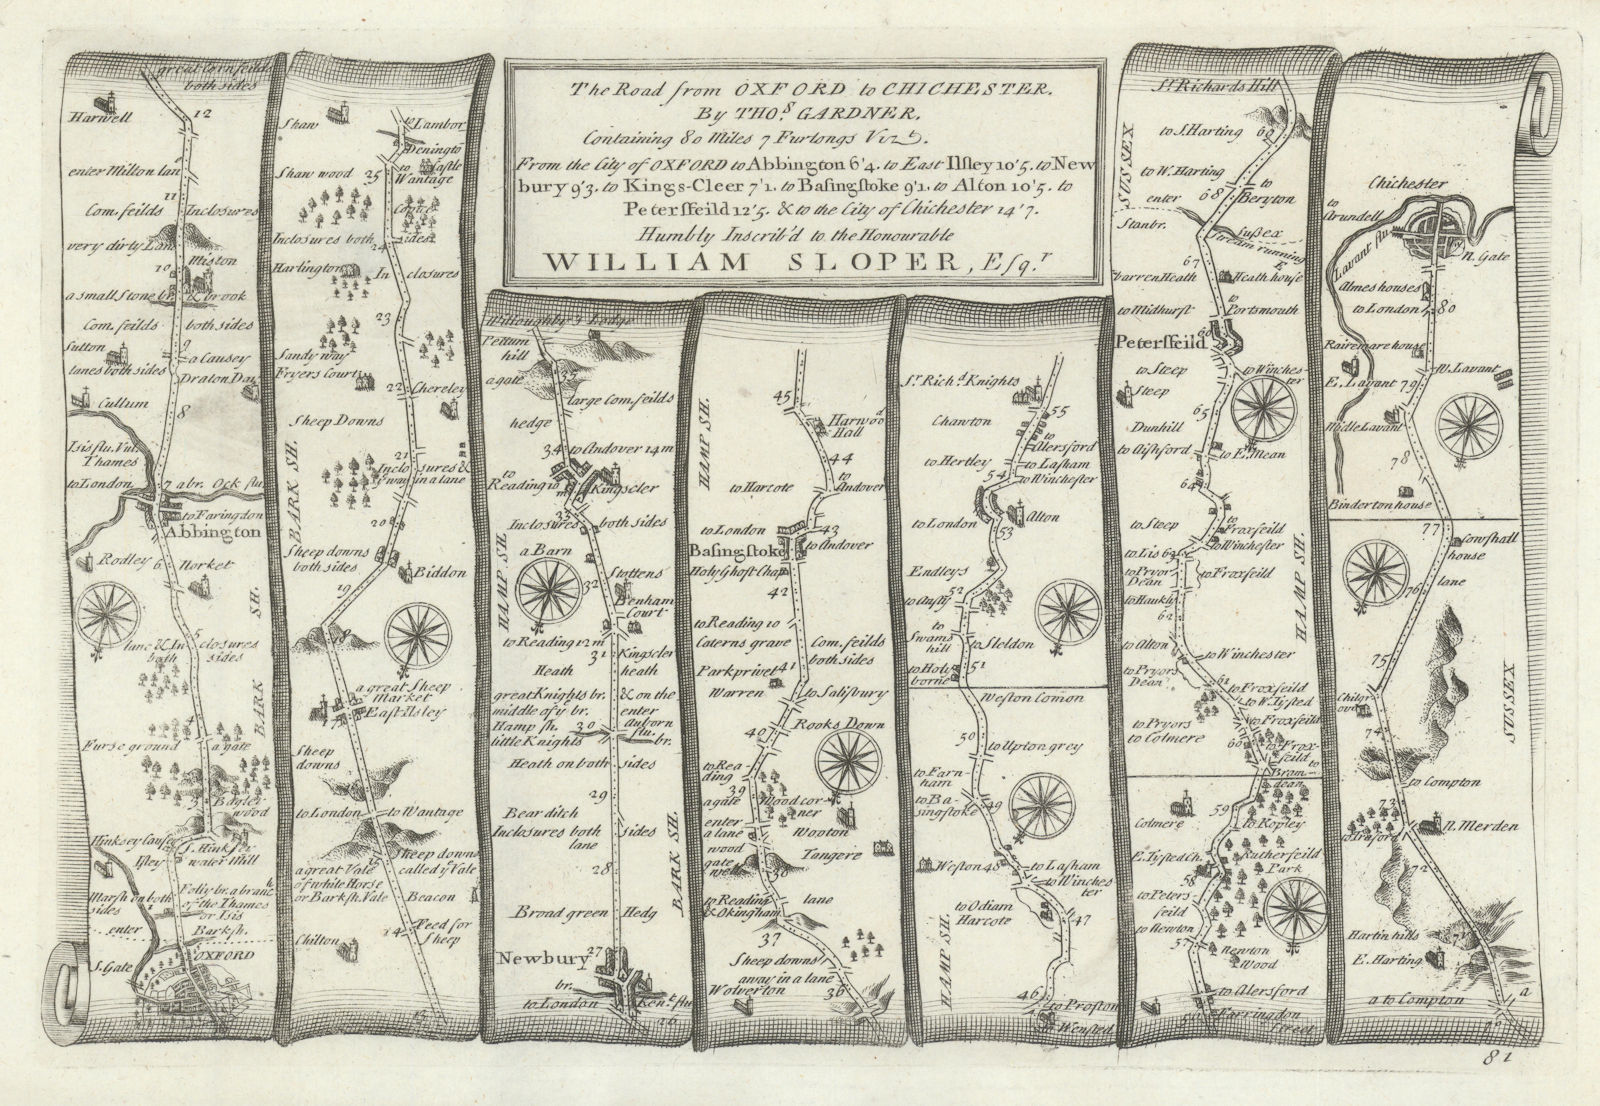 The Road from OXFORD to CHICHESTER.
By THOS. GARDNER.
Containing 80 Miles 7 Furlongs Viz.
From the City of OXFORD to Abbington 6'4. to East Ilſley 10'5. to New
bury 9'3. to Kings-Cleer 7'1. to Baſingſtoke 9'1. to Alton 10'5. to
Petersfeild 12'5. & to the City of Chicheſter 14'7.
Humbly Inscrib'd to the Honourable
WILLIAM SLOPER, Eſq.r
great Cornfeild
both sides
12
Harwell
enter Milton lan
11
Com. feilds Inclosures
very dirty Lan
Milton
10
a small Stone br. & brook
Com. feilds both sides
Sutton
9
a Causey
lanes both sides
Draton
Cullum
8
Isis flu. Vul.
Thames
to London
7 a br. Ock flu
to Faringdon
Abbington
Rodley
6
Norket
5
lane & In closures
both sides
BARK SH.
4
Furse ground
a gate
3
Bagley
wood
Hinksey Causey
S. Hinksey
water Mill
Ifley
Marsh on both
sides
Foliy br. a branch
of the Thames
or Isis
enter
Barksh.
OXFORD
S. Gate
Shaw
to Lambor
Denington
Castle
to
Wantage
Shaw wood 25
Inclosures both sides
24
Harlington
In closures
23
Sandy way
Fryers Court
22
Chereley
Sheep Downs
BARK SH.
21
Inclosures &
way in a lane
20
Sheep downs
both sides
Biddon
19
18
a great Sheep
Market
East Ilsley
17
Sheep
downs
to London
to Wantage
15
Sheep downs
called ye Vale
a great Vale
of white Horse
or Barksh. Vale
Beacon
14
Feed for
Sheep
Chilton
13
Willoughby's Lodge
Pettum
hill
35
a gate
large Com. feilds
hedge
34
to Andover 14 m
to
Reading 10
m
Kingscler
33
Inclosures both sides
HAMP SH.
a Barn
32
Stottens
Denham
Court
to Reading 12 m
31
Kingscler
Heath heath
great Knights br. & on the
middle of ye br. enter
Hamp sh. 30
Auborn
flu.
little Knights br.
Heath on both sides
29
Bear ditch
Inclosures both sides
lane
28
BARK SH.
Broad green Hedg
Newbury 27
br.
to London
Kent flu
26
HAMP SH.
45
Harwood
Hall
44
to Harcote
to Andover
43
to London
Basingstoke
to Andover
Holy Ghost Chap
42
to Reading 10
Caterns grave
Com. feilds
both sides
Parkprive 41
Warren
to Salisbury
Rooks Down
40
to Rea-
ding
39
a gate
Wood cor-
ner
enter
a lane
Wooton
wood
gate
Tangere
38
to Reading
& Okingham
lane
37
Sheep downs
away in a lane
Wolverton
36
St. Richd. Knights
55
Chawton
to
Alersford
to Hertley
to Lasham
54
to Winchester
to London
Alton
53
Endleys
52
to Swams
hill
to Sleldon
to Holy
borne
51
Weston Comon
50
to Upton grey
to Farn-
ham
to Ba-
singstoke
49
Weston 48
to Lasham
to Winches
ter
to Odiam
Harcote
47
HAMP SH.
46
to Preston
Wensted
St. Richards Hill
SUSSEX
to S. Harting
69
to W. Harting
68
to
Beryton
enter
Stanbr.
Sussex
Stream running
E
67
barren Heath
Heath house
to Midhurst
to
Portsmouth
66
Petersfeild
to Steep
to Winches-
ter
Steep
65
Dunhill
to Aishford
to E. Mean
64
to Steep
to
Froxfeild
to Winchester
to Lis 63
to Pryor
Dean
to Froxfeild
HAMP SH.
to Haukly
62
to Alton
to Winchester
to Pryors
Dean
61
to Froxfeild
to W. Tysted
to Pryors
to Froxfeild
to Colmere
60
to Frox-
feild
to
Bram-
dean
59
Colmere
to Ropley
E. Tysted Ch.
Rutherfeild
Park
58
to Peters
feild
to Newton
57
Newton
Wood
to Alersford
56
Farringdon
street
Chichester
to
Arundell
Lavant flu
N. Gate
Almes houses
to London 80
Rairemare house
W. Lavant
E. Lavant 79
Midle Lavant
78
Binderton house
77
Cowshall
house
lane
76
75
SUSSEX
Chilgr
ove
74
to Compton
73
N. Merden
72
Hartin hills
71
E. Harting
a to Compton
a
70
81